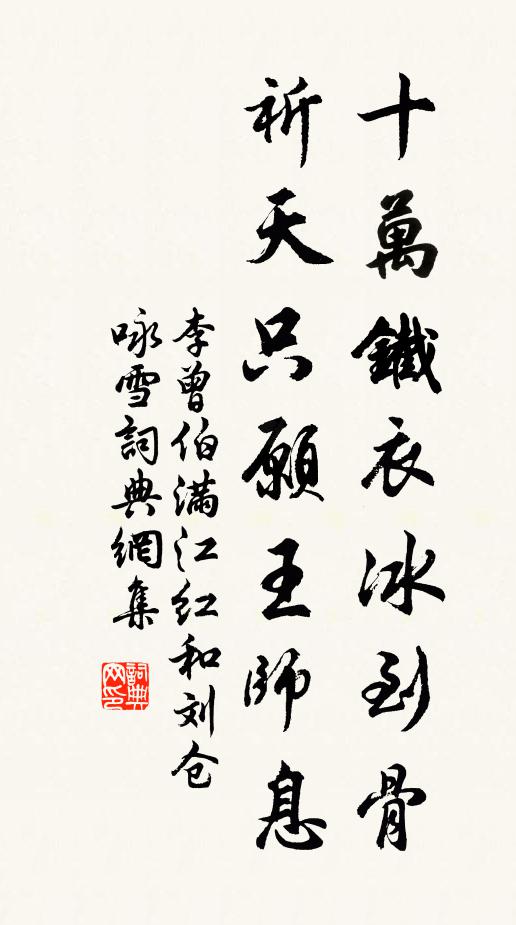 十萬鐵衣冰到骨
祈天只願王師息
李曾伯满江红和刘仓
咏雪詞典網集
詞典网印